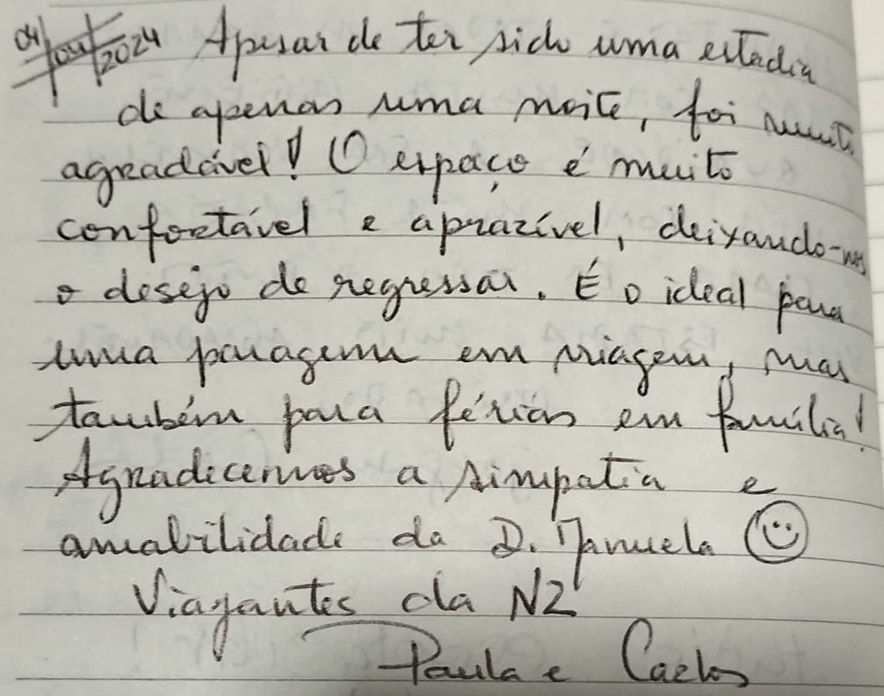 04/04/2024 Apesar de ter sido uma estadia
de apenas uma noite, foi muito
agradável! O espaço é muito
confortável e aprazível, deixando-nos
o desejo de regressar. É o ideal para
uma paragem em viagem, mas
também para férias em família!
Agradecemos a simpatia e
amabilidade da D. Manuela ☺
Viajantes da N2
Paula e Carlos